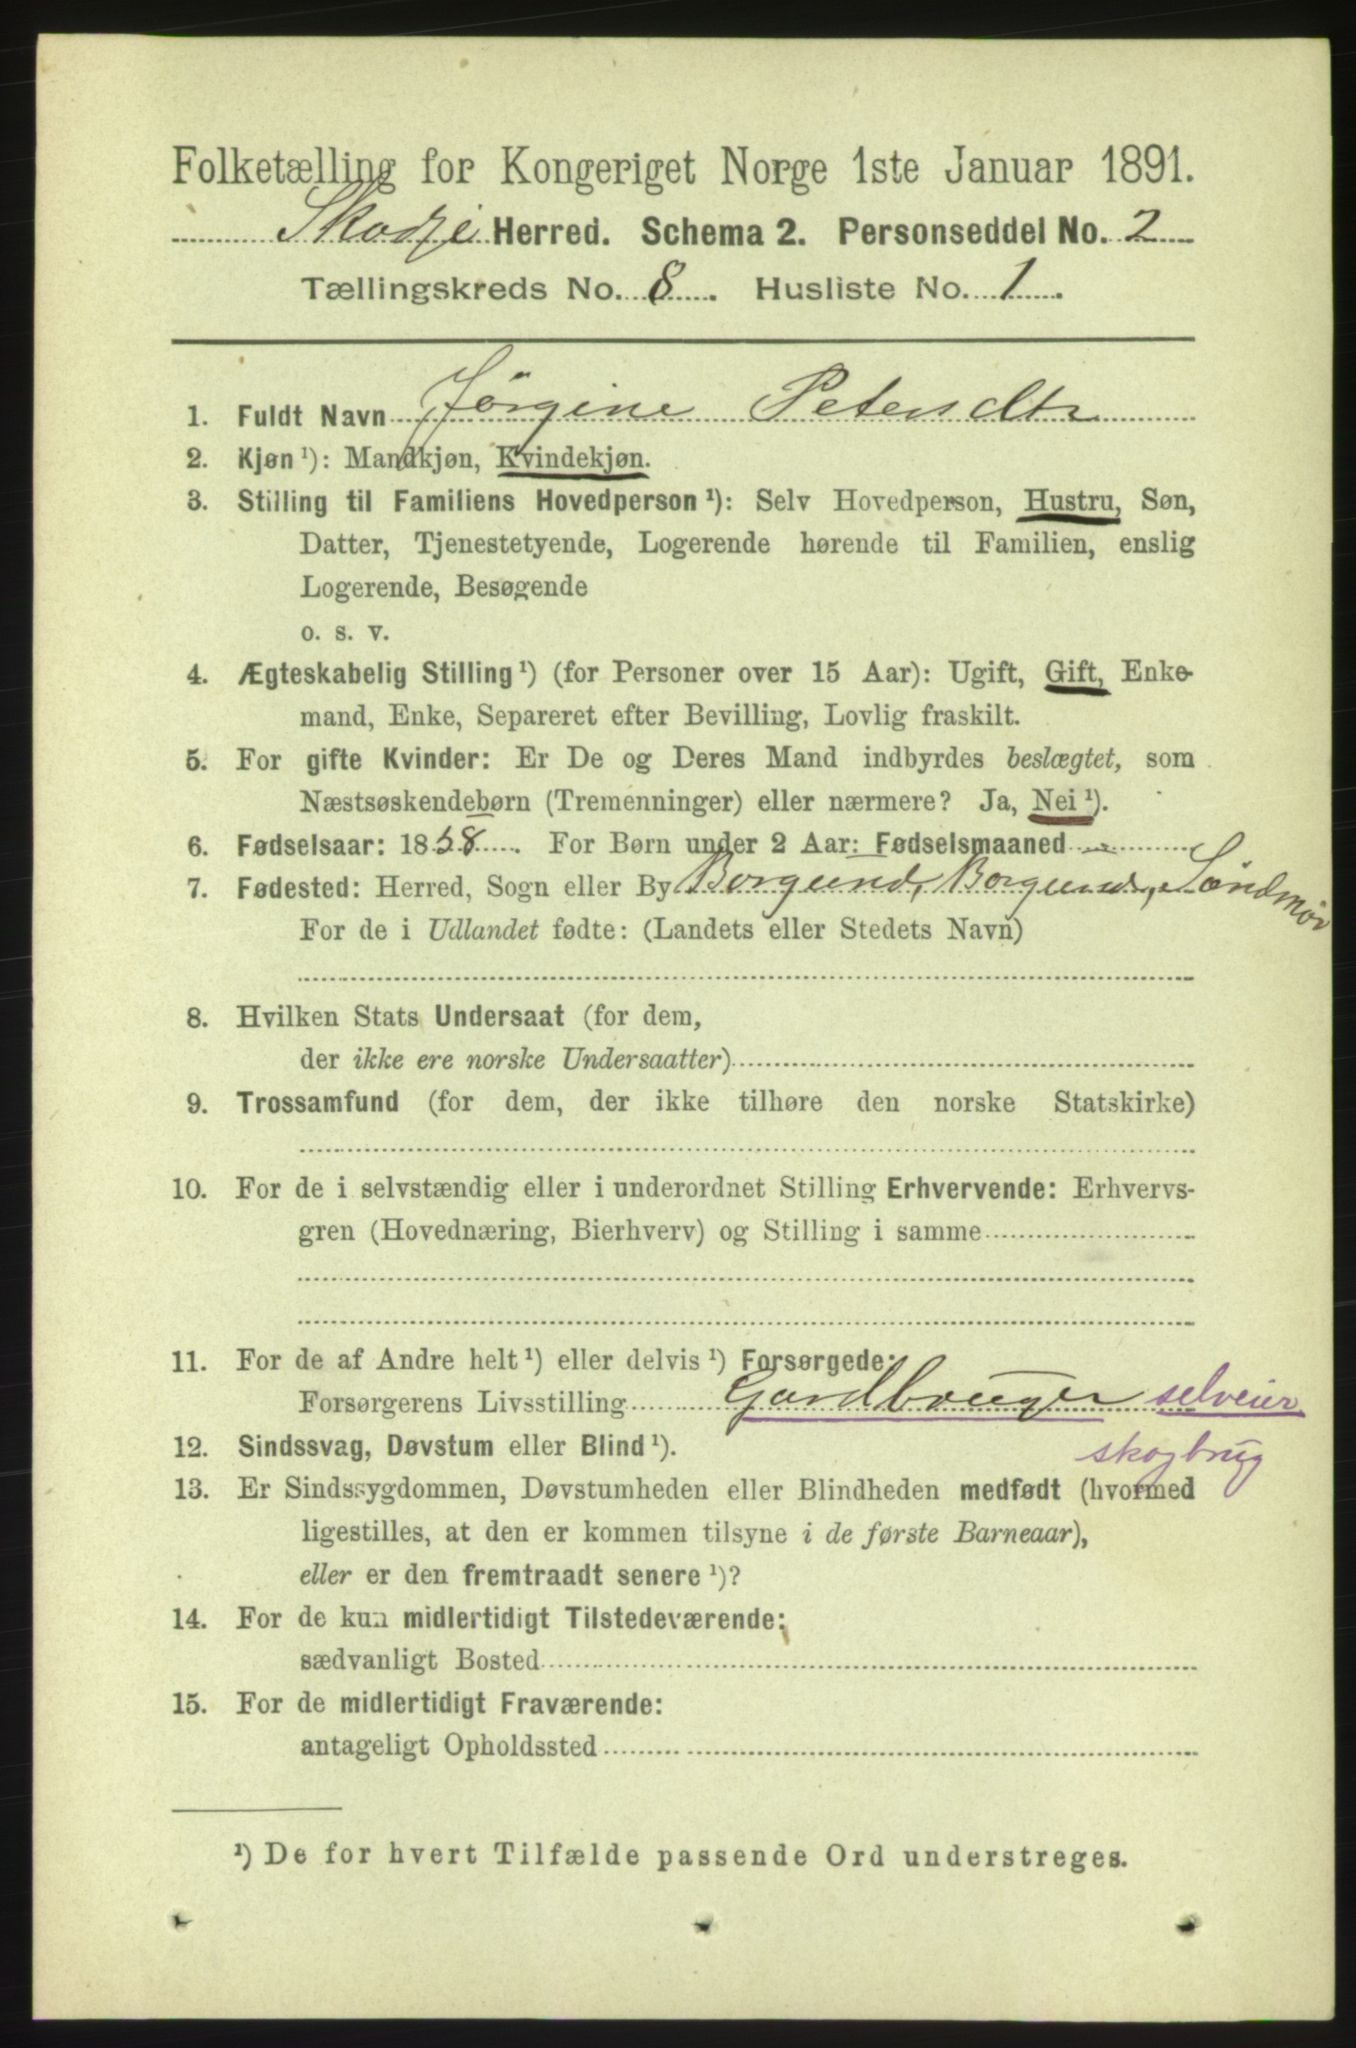 Folketælling for Kongeriget Norge 1ste Januar 1891.
Skodje Herred. Schema 2. Personseddel No. 2
Tællingskreds No. 8. Husliste No. 1.
1. Fuldt Navn Jørgine Petersdtr
2. Kjøn ¹): Mandkjøn, Kvindekjøn.
3. Stilling til Familiens Hovedperson ¹): Selv Hovedperson, Hustru, Søn,
Datter, Tjenestetyende, Logerende hørende til Familien, enslig
Logerende, Besøgende
o. s. v.
4. Ægteskabelig Stilling ¹) (for Personer over 15 Aar): Ugift, Gift, Enke-
mand, Enke, Separeret efter Bevilling, Lovlig fraskilt.
5. For gifte Kvinder: Er De og Deres Mand indbyrdes beslægtet, som
Næstsøskendebørn (Tremenninger) eller nærmere? Ja, Nei ¹).
6. Fødselsaar: 1858. For Børn under 2 Aar: Fødselsmaaned
7. Fødested: Herred, Sogn eller By Borgund, Borgund, Søndmør
For de i Udlandet fødte: (Landets eller Stedets Navn)
8. Hvilken Stats Undersaat (for dem,
der ikke ere norske Undersaatter)
9. Trossamfund (for dem, der ikke tilhøre den norske Statskirke)
10. For de i selvstændig eller i underordnet Stilling Erhvervende: Erhvervs-
gren (Hovednæring, Bierhverv) og Stilling i samme
11. For de af Andre helt ¹) eller delvis ¹) Forsørgede:
Forsørgerens Livsstilling Gardbruger selveier
skogbrug
12. Sindssvag, Døvstum eller Blind ¹).
13. Er Sindssygdommen, Døvstumheden eller Blindheden medfødt (hvormed
ligestilles, at den er kommen tilsyne i de første Barneaar),
eller er den fremtraadt senere ¹)?
14. For de kun midlertidigt Tilstedeværende:
sædvanligt Bosted
15. For de midlertidigt Fraværende:
antageligt Opholdssted
¹) De for hvert Tilfælde passende Ord understreges.